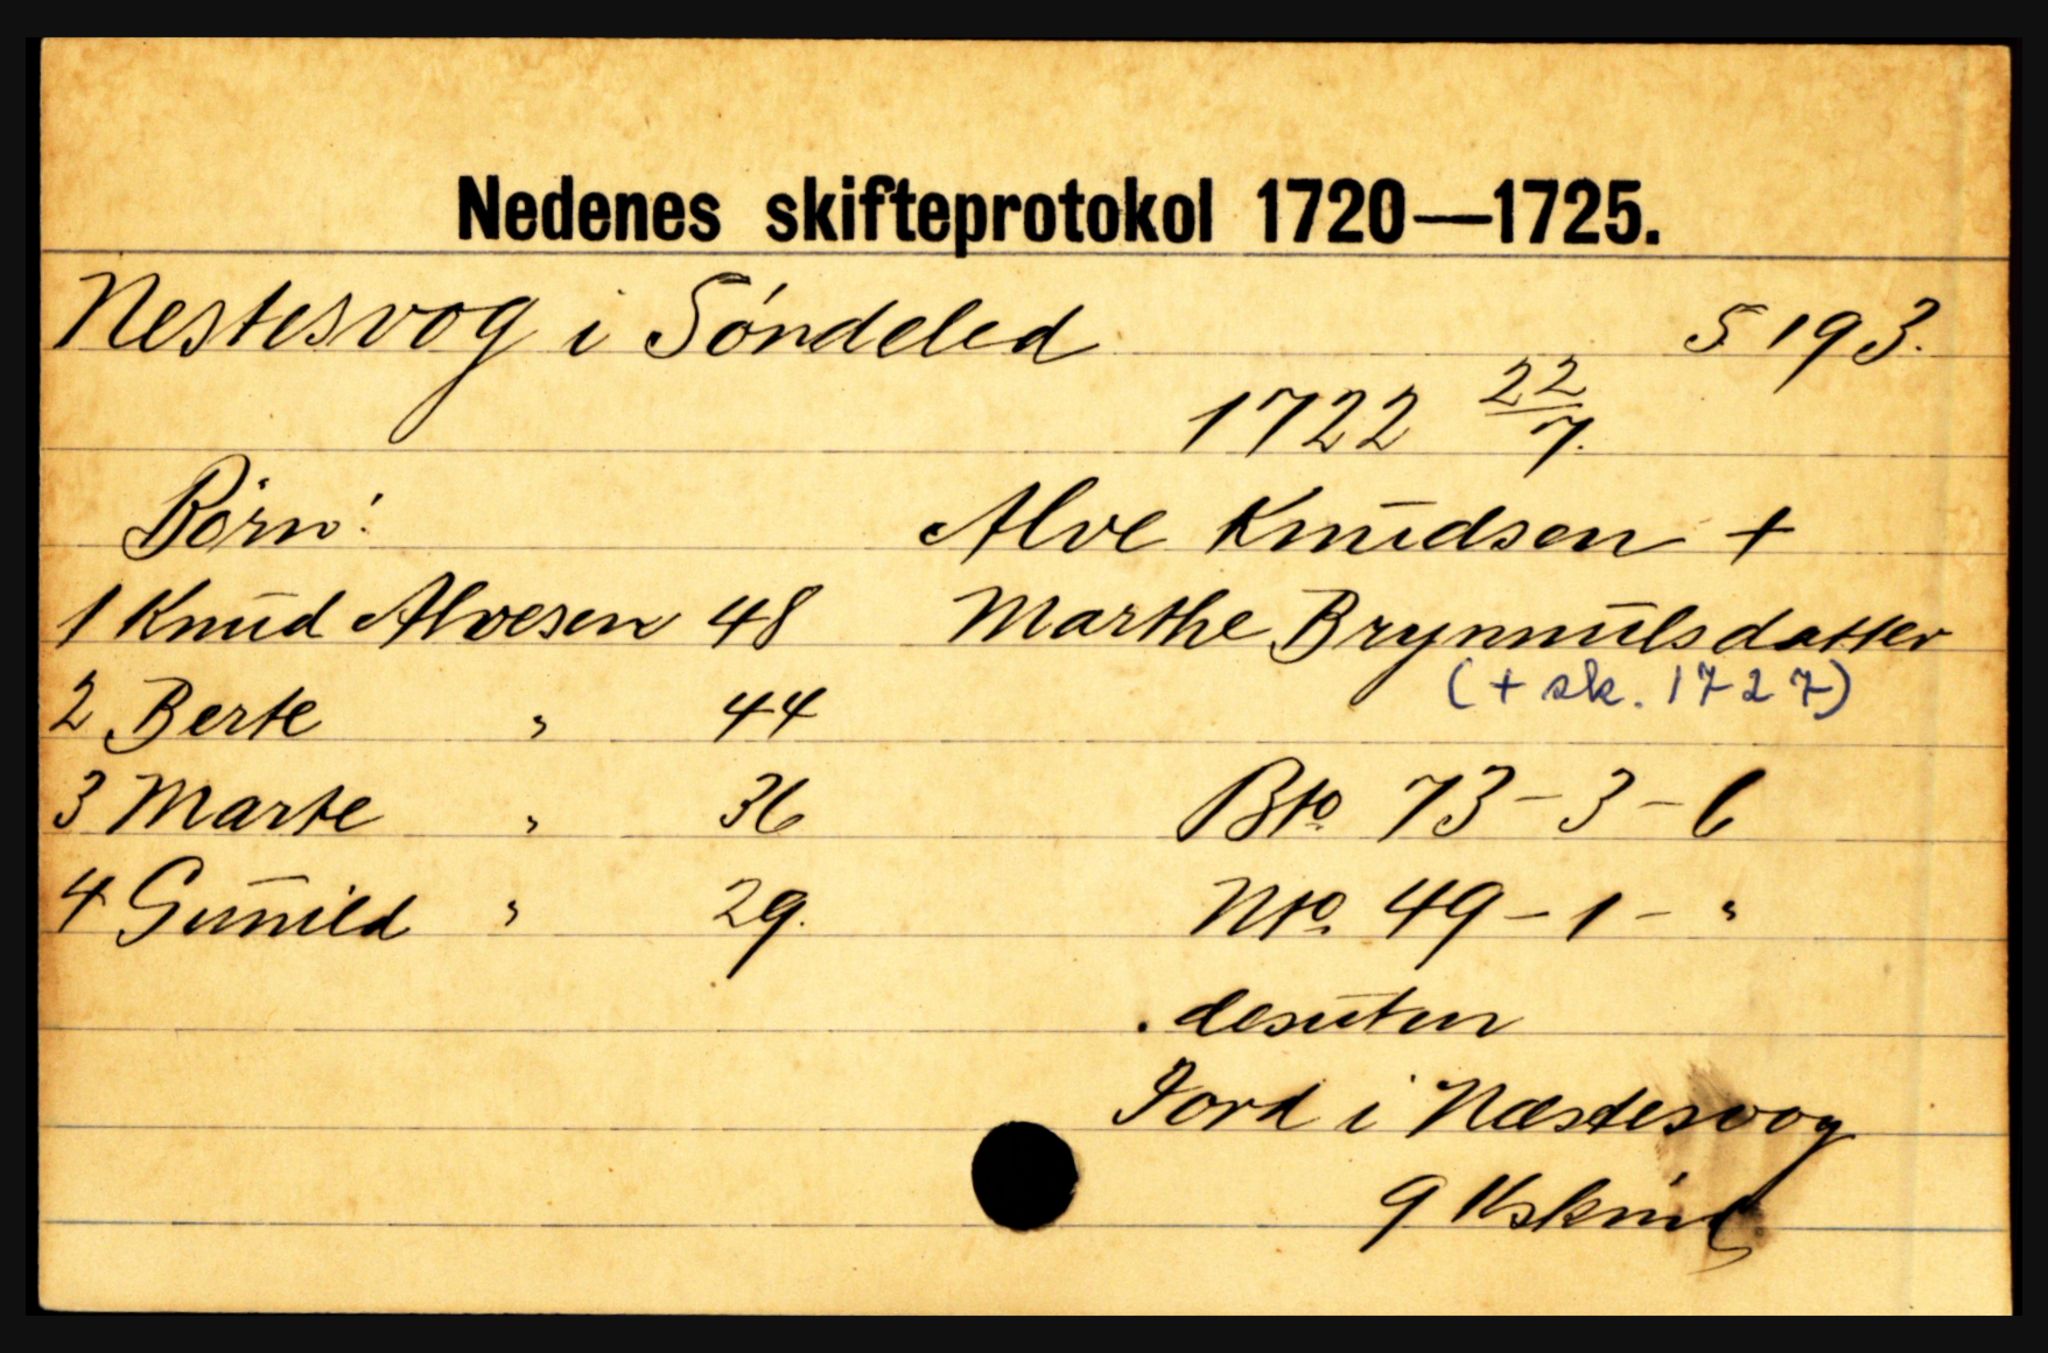 Nedenes skifteprotokol 1720—1725.
Nestesvog i Söndeled S. 193.
1722 22/7.
Börn:
Alve Knudsen +
1 Knud Alvesen 48
Marthe Brynnulsdatter
(+ sk. 1727)
2 Berte " 44
3 Marte " 36
Bto 73 - 3 - 6
4 Gunild " 29.
Nto. 49 - 1 - "
desuten
Jord i Næstesvog
9 Kskind